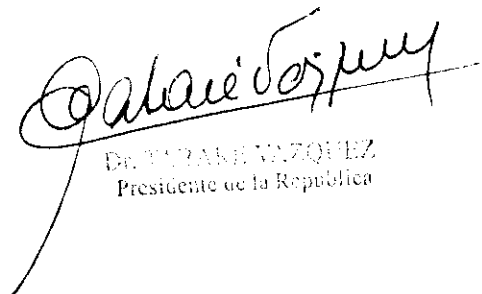 Tabaré Vázquez
Dr. TABARE VAZQUEZ
Presidente de la República